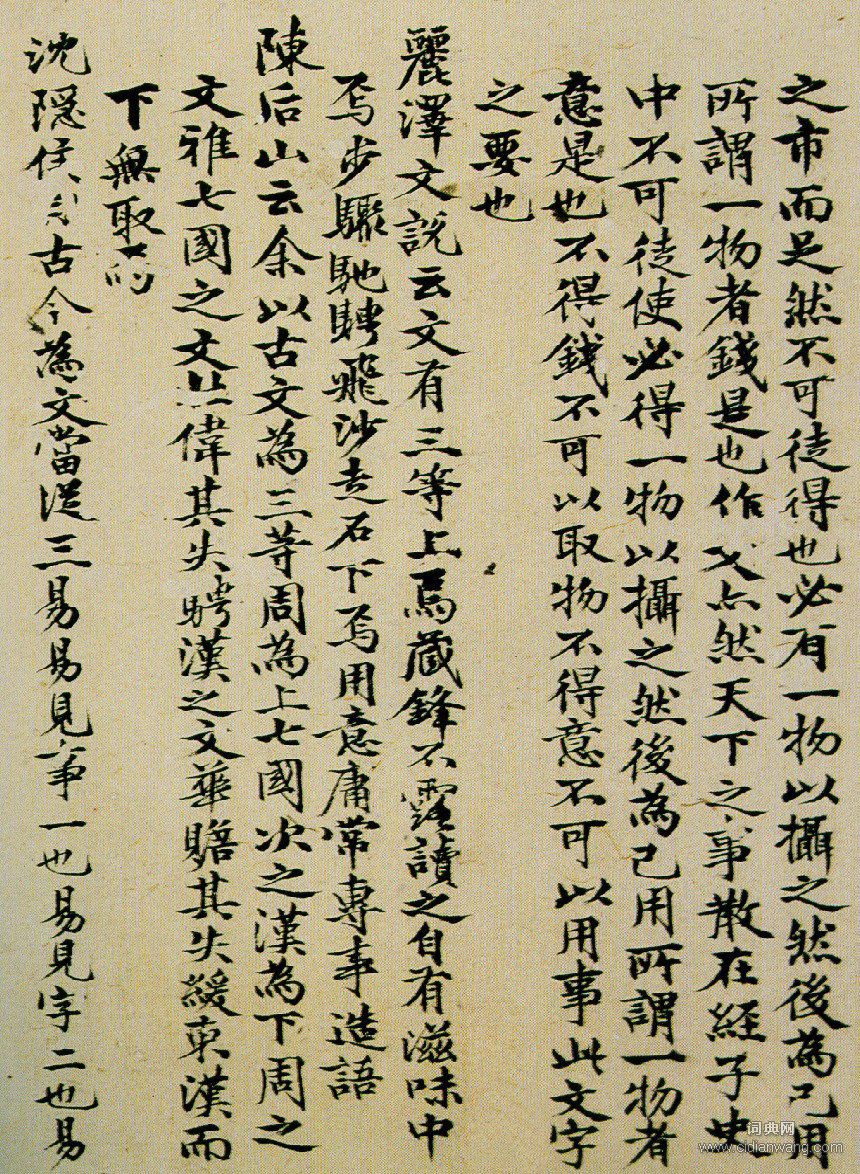 之市而足然不可徒得也必有一物以攝之然後為己用
所謂一物者錢是也作文亦然天下之事散在經子史
中不可徒使必得一物以攝之然後為己用所謂一物者
意是也不得錢不可以取物不得意不可以用事此文字
之要也
麗澤文說云文有三等上焉藏鋒不露讀之自有滋味中
焉步驟馳騁飛沙走石下焉用意庸常專事造語
陳后山云余以古文為三等周為上七國次之漢為下周之
文雅七國之文壯偉其失騁漢之文華贍其失緩東漢而
下無取
沈隱侯古今為文當從三易易見事一也易見字二也易
词典网
www.cidianwang.com